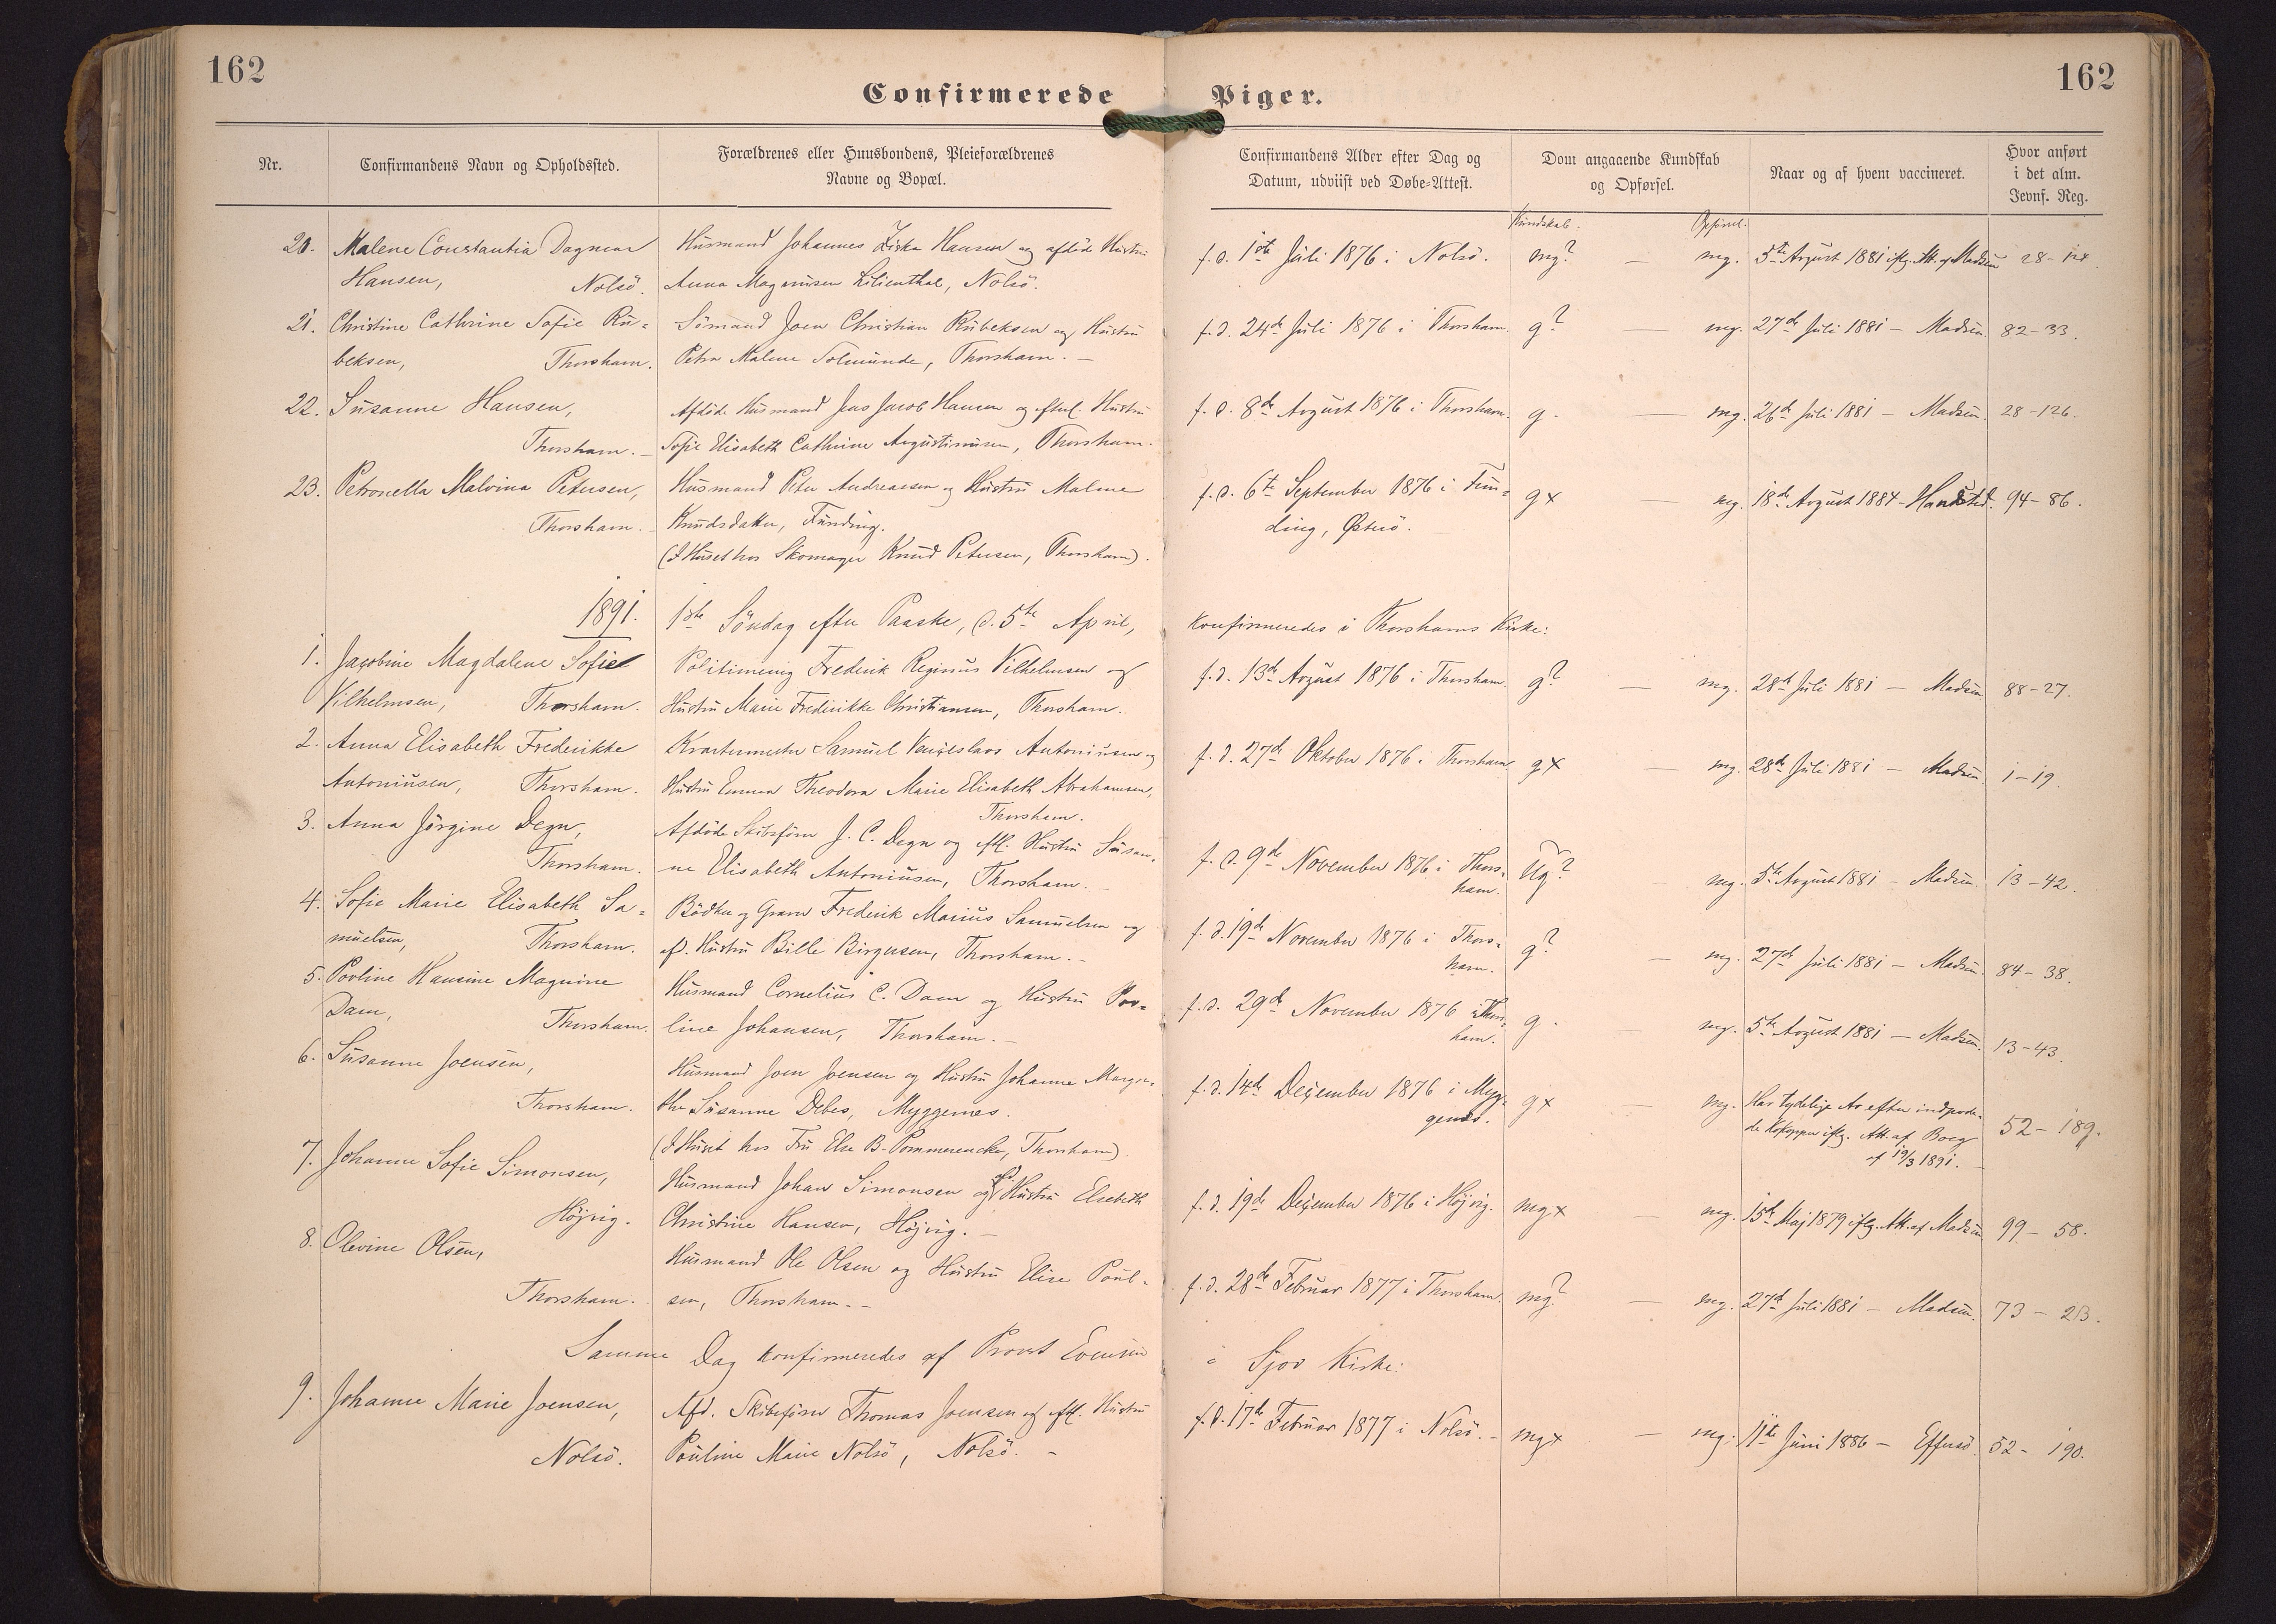 162
Confirmerede Piger.
162
Nr.
Confirmandens Navn og Opholdssted.
Forældrenes eller Huusbondens, Pleieforældrenes
Navne og Bopæl.
Confirmandens Alder efter Dag og
Datum, udviist ved Døbe-Attest.
Dom angaaende Kundskab
og Opførsel.
Naar og af hvem vaccineret.
Hvor anført
i det alm.
Jevnf. Reg.
Kundskab. Opførsel.
20. Malene Constantia Dagmar
Hansen, Nolsö.
Husmand Johannes Ziska Hansen og afdöde Hustru
Anna Magnussen Lilienthal, Nolsö.
f. d. 1ste Juli 1876 i Nolsö. mg? — mg. 5te August 1881 iflg. Att. af Madsen 28-124
21. Christine Cathrine Sofie Ru-
beksen, Thorsham.
Sömand Joen Christian Rubeksen og Hustru
Petra Malene Solmunde, Thorsham. —
f. d. 24de Juli 1876 i Thorsham. g? — mg. 27de Juli 1881 — Madsen. 82-33.
22. Susanne Hansen,
Thorsham. —
Afdöde Husmand Jens Jacob Hansen og efterl. Hustru
Sofie Elisabeth Cathrine Augustinussen, Thorsham.
f. d. 8de August 1876 i Thorsham. g. — mg. 26de Juli 1881 — Madsen. 28-126.
23. Petronella Malvina Petersen,
Thorsham. —
Husmand Peter Andreassen og Hustru Malene
Knudsdatter, Funding.
(I Huset hos Skomager Knud Petersen, Thorsham).
f. d. 6te September 1876 i Fun-
ding, Østerö.
gx — mg. 18de August 1884 — 94-86.
1891. 1ste Söndag efter Paaske, d. 5te April, konfirmeredes i Thorshams Kirke:
1. Jacobine Magdalene Sofie
Vilhelmsen, Thorsham.
Politimenig Frederik Reginus Vilhelmsen og
Hustru Marie Frederikke Christiansen, Thorsham.
f. d. 13de August 1876 i Thorsham. g? — mg. 28de Juli 1881 — Madsen 88-27.
2. Anna Elisabeth Frederikke
Antoniusen, Thorsham.
Kvartermester Samuel Venseslaos Antoniusen og
Hustru Emma Theodora Marie Elisabeth Abrahamsen,
Thorsham.
f. d. 27de Oktober 1876 i Thorsham. gx — mg. 28de Juli 1881 — Madsen. 1-19.
3. Anna Jörgine Degn,
Thorsham.
Afdöde Skibsförer J. C. Degn og eftl. Hustru Susan-
ne Elisabeth Antoniusen, Thorsham. —
f. d. 9de November 1876 i Thors-
ham.
Ug? mg. 5te August 1881 — Madsen. 13-42.
4. Sofie Marie Elisabeth Sa-
muelsen, Thorsham.
Bödker og Graver Frederik Marius Samuelsen og
afd. Hustru Bille Birgersen, Thorsham. —
f. d. 19de November 1876 i Thors-
ham.
g? — mg. 27de Juli 1881 — Madsen. 84-38.
5. Povline Hansine Magnine
Dam, Thorsham.
Husmand Cornelius C. Dam og Hustru Pov-
line Johansen, Thorsham. —
f. d. 29de November 1876 i Thors-
ham.
g. mg. 5te August 1881 — Madsen. 13-43.
6. Susanne Joensen,
Thorsham.
Husmand Joen Joensen og Hustru Johanne Margre-
the Susanne Debes, Myggenæs.
(I Huset hos Fru Else B. Pommerencke, Thorsham).
f. d. 14de December 1876 i Myg-
genæs.
gx — mg. Har tydelige Ar efter indpode-
de Kokopper iflg. Att. af Boeg
af 19/3 1891.
52-189.
7. Johanne Sofie Simonsen,
Højvig.
Husmand Johan Simonsen og afd. Hustru Elsebeth
Christine Hansen, Højvig. —
f. d. 19de December 1876 i Højvig. mgx — mg. 15de Maj 1879 iflg. Att. af Madsen 99-58.
8. Olevine Olsen,
Thorsham.
Husmand Ole Olsen og Hustru Elise Poul-
sen, Thorsham. —
f. d. 28de Februar 1877 i Thorsham. mg? — mg. 27de Juli 1881 — Madsen. 73-23.
Samme Dag konfirmeredes af Provst Evensen i Sjov Kirke:
9. Johanne Marie Joensen,
Nolsö.
Afd. Skibsförer Thomas Joensen og eftl. Hustru
Pouline Marie Nolsö, Nolsö. —
f. d. 17de Februar 1877 i Nolsö. — mgx — mg. 11te Juni 1886 — Effersö. 52-190.